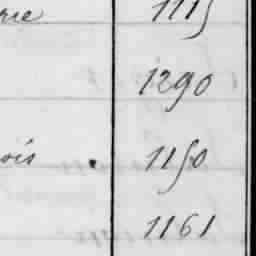 rie 1115
1290
ois . 1150
1161